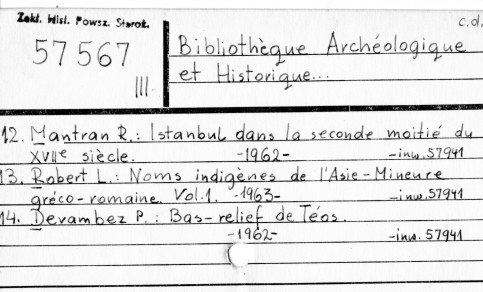 Zakł. Hist. Powsz. Staroż.
c.d.
57 567
III
Bibliothèque Archéologique
et Historique...
12. Mantran R.: Istanbul dans la seconde moitié du
XVIIe siècle. -1962- -inw. 57941
13. Robert L.: Noms indigènes de l'Asie-Mineure
gréco-romaine. Vol.1. -1963- -inw. 57941
14. Devambez P.: Bas-relief de Téos.
-1962- -inw. 57941